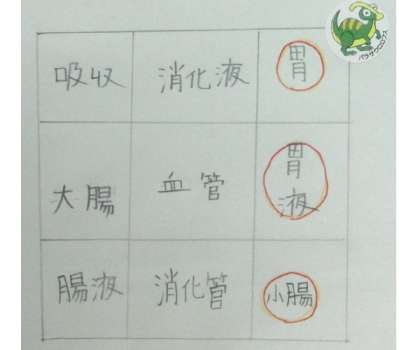 吸収 消化液 胃
大腸 血管 胃液
腸液 消化管 小腸
パラサウロロフス